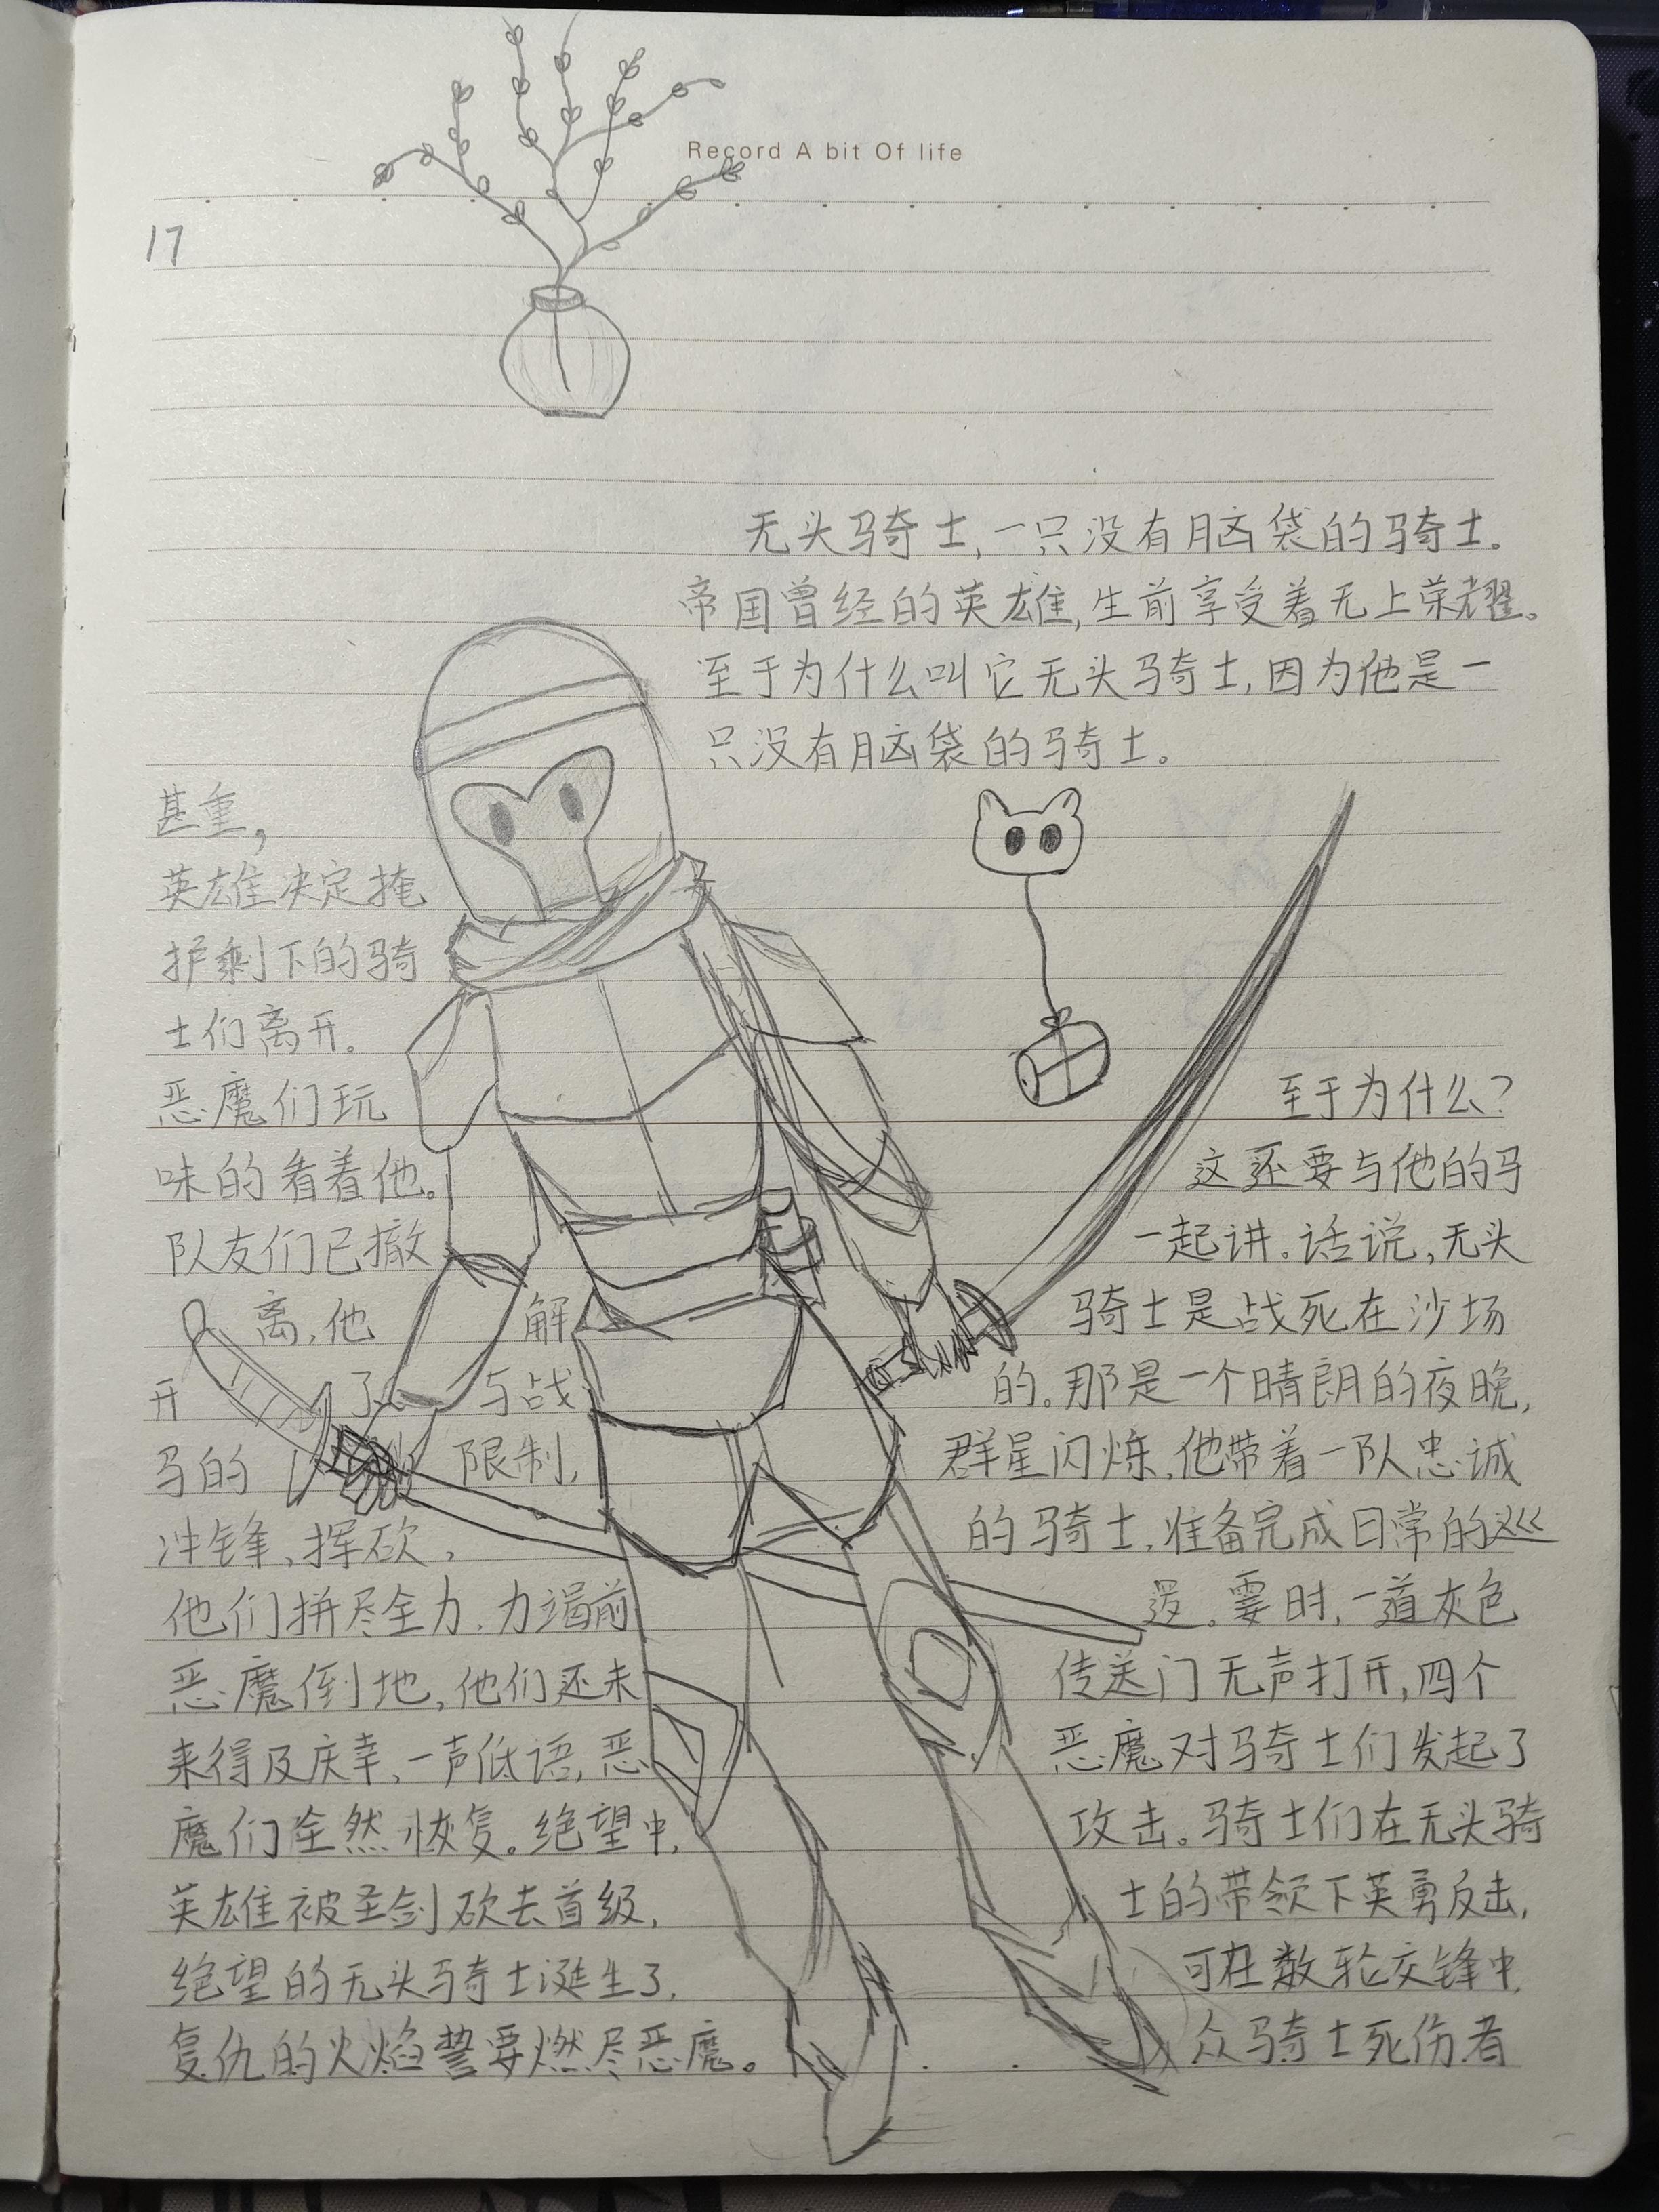 Record A bit Of life
17
无头骑士,一只没有脑袋的骑士。
帝国曾经的英雄,生前享受着无上荣耀。
至于为什么叫它无头骑士,因为他是一
只没有脑袋的骑士。
至于为什么?
这还要与他的马
一起讲。话说,无头
骑士是战死在沙场
的。那是一个晴朗的夜晚,
群星闪烁,他带着一队忠诚
的骑士,准备完成日常的巡
逻。霎时,一道灰色
传送门无声打开,四个
恶魔对骑士们发起了
攻击。骑士们在无头骑
士的带领下英勇反击,
可在数轮交锋中,
众骑士死伤者
甚重,
英雄决定掩
护剩下的骑
士们离开。
恶魔们玩
味的看着他。
队友们已撤
离,他 解
开 了 与战
马的 限制,
冲锋、挥砍,
他们拼尽全力,力竭前
恶魔倒地,他们还未
来得及庆幸,一声低语,恶
魔们全然恢复。绝望中,
英雄被圣剑砍去首级,
绝望的无头骑士诞生了,
复仇的火焰誓要燃尽恶魔。